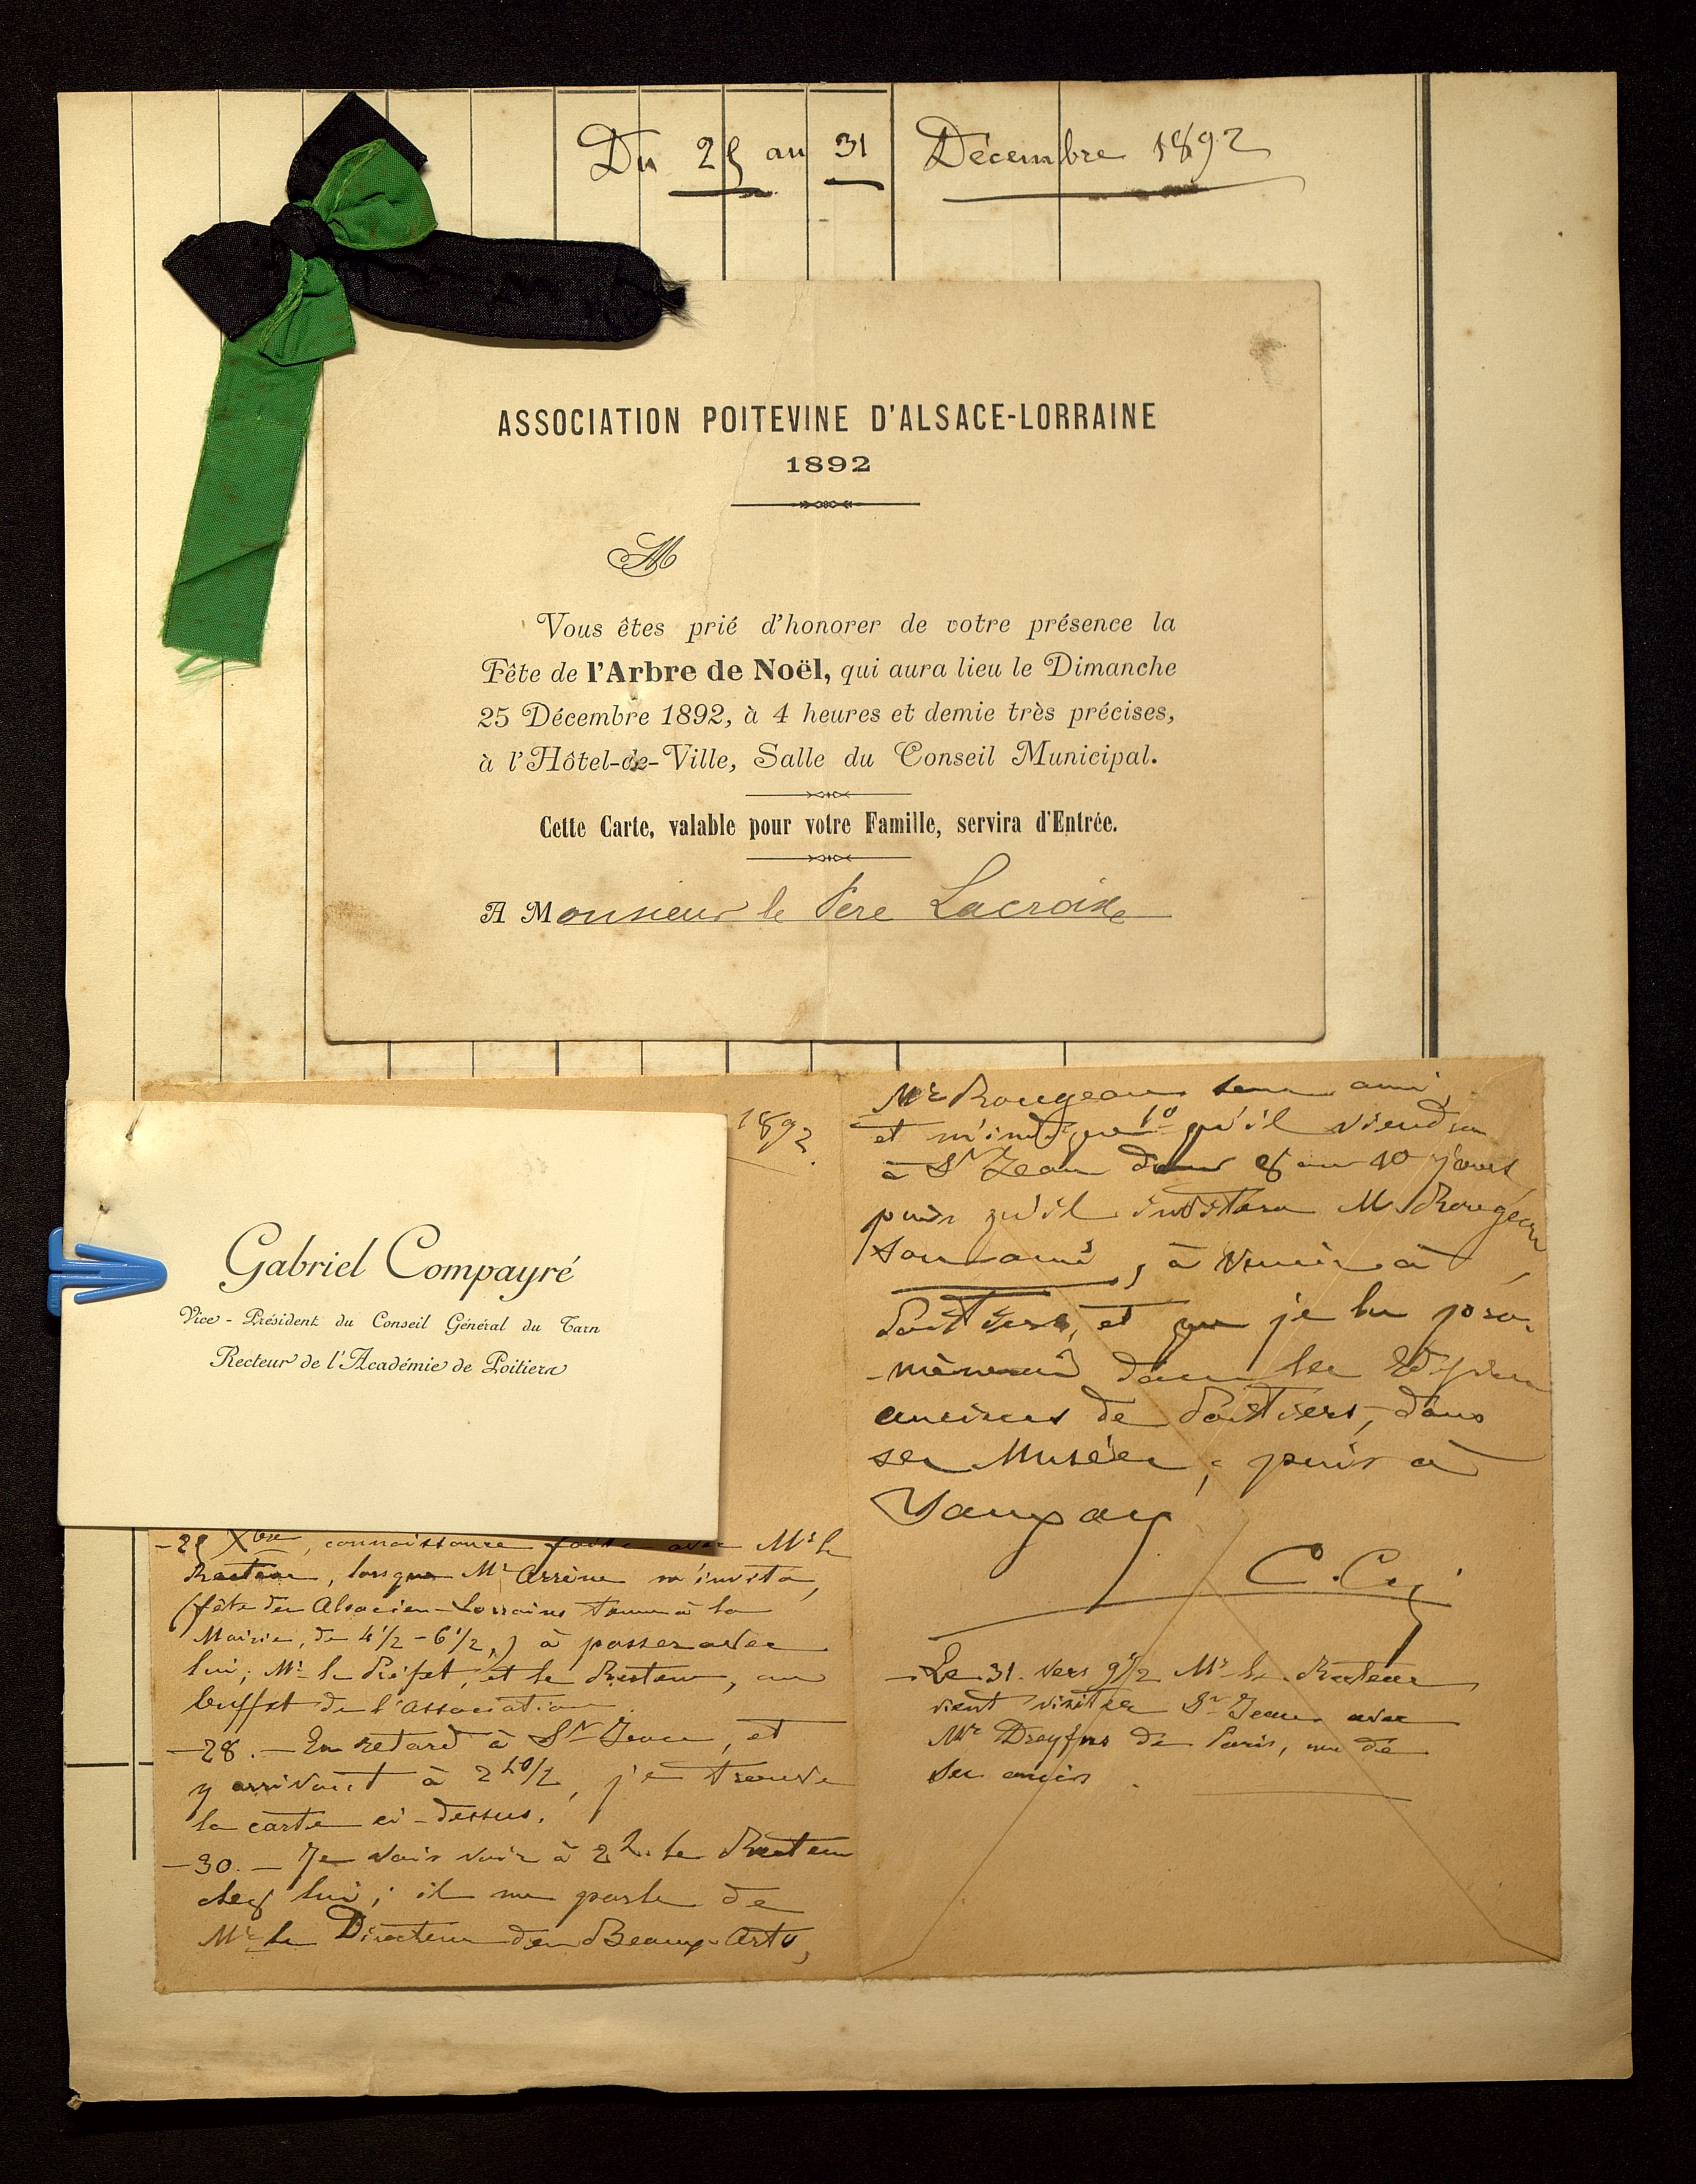 Du 25 au 31 Décembre 1892
ASSOCIATION POITEVINE D'ALSACE-LORRAINE
1892
M
Vous êtes prié d'honorer de votre présence la
Fête de l'Arbre de Noël, qui aura lieu le Dimanche
25 Décembre 1892, à 4 heures et demie très précises,
à l'Hôtel-de-Ville, Salle du Conseil Municipal.
Cette Carte, valable pour votre Famille, servira d'Entrée.
A Monsieur le Père Lacroix
1892.
Gabriel Compayré
Vice-Président du Conseil Général du Tarn
Recteur de l'Académie de Poitiers
-25 Xbre, connaissance faite avec Mr le
Recteur, lorsque Mr Arrène m'invita,
(fête des Alsacien-Lorrains tenue à la
Mairie, de 4 1/2 - 6 1/2,) à passer avec
lui, Mr le Préfet, et le Recteur, au
buffet de l'association.
-28. - En retard à St Jean, et
y arrivant à 2h 1/2, je trouve
la carte ci-dessus.
-30. - Je vais voir à 2h. le Recteur
chez lui; il me parle de
Mr le Directeur des Beaux-Arts,
Mr Rougeau son ami,
et m'indique 1o qu'il viendra
à St Jean dans 8 ou 10 jours,
puis qu'il invitera M. Rougeau
son ami, à venir à
Poitiers, et que je le pro-
-mènerai dans les
anciens de Poitiers, dans
ses Musées; puis à
Sanxay
- Le 31. vers 9h 1/2 Mr le Recteur
vient visiter St Jean avec
Mr Dreyfus de Paris, un de
ses amis.